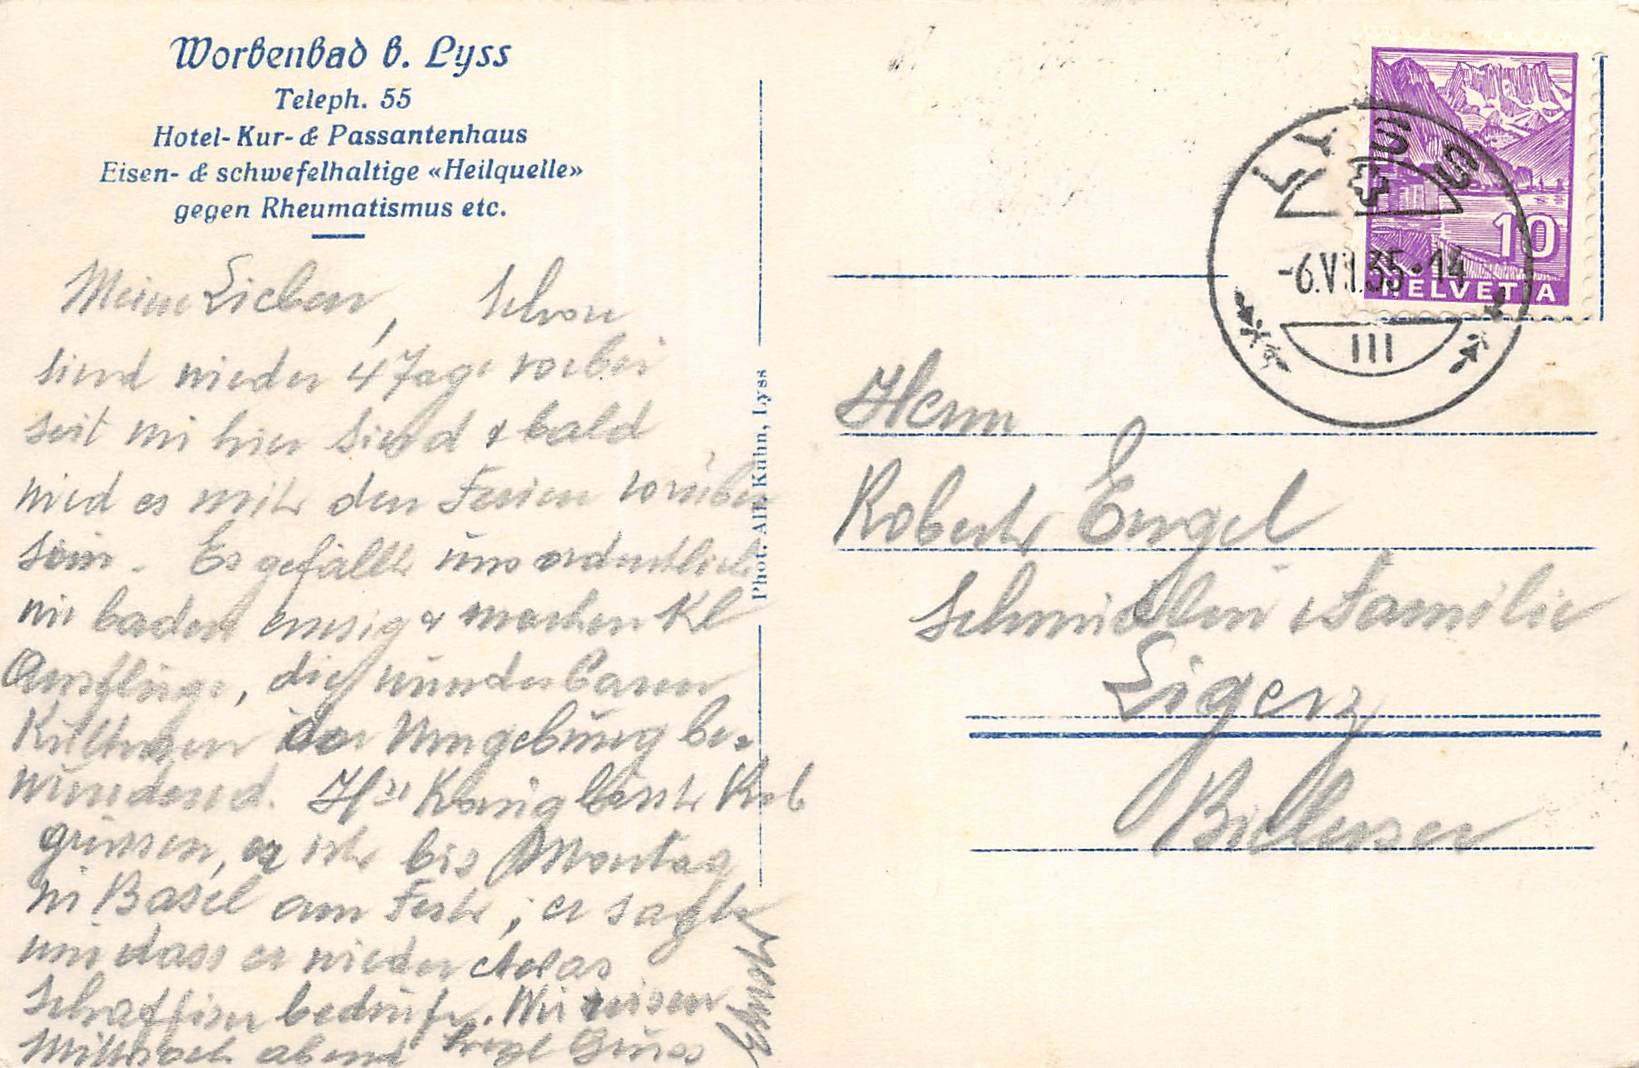 Worbenbad b. Lyss
Teleph. 55
Hotel-Kur- & Passantenhaus
Eisen- & schwefelhaltige «Heilquelle»
gegen Rheumatismus etc.
Meine Lieben, Schon
sind wieder 4 Tage vorbei
seit wir hier sind & bald
wird es mit den Ferien vorüber
sein. Es gefällt uns ordentlich
wir baden emsig & machen kl
Ausflüge, die wunderbaren
Kulturen der Umgebung be-
wundernd. Hr König lässt Rob
grüssen, er ist bis Montag
in Basel am Fest, er sagte
uns dass er wieder etwas
Schaffen bedürfe. Wir reisen
Mittwoch abend Gruss
Phot. Alf. Kühn, Lyss
LYSS
-6.VII.35-14
III
10
HELVETIA
Herrn
Robert Engel
Schmidlin & Familie
Ligerz
Bielersee